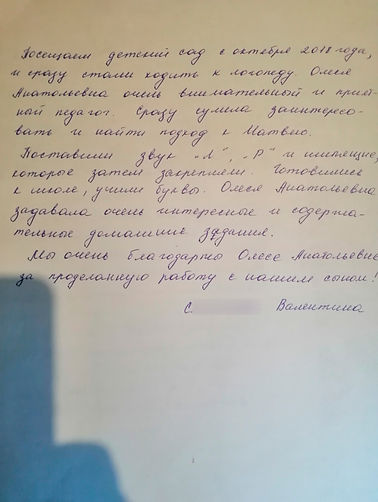 Посещаем детский сад с октября 2018 года,
и сразу стали ходить к логопеду. Олеся
Анатольевна очень внимательный и прият-
ный педагог. Сразу сумела заинтересо-
вать и найти подход к Матвею.
Поставили звук "Л", "Р" и шипящие,
которые затем закрепляли. Готовились
к школе, учили буквы. Олеся Анатольевна
задавала очень интересные и содержа-
тельные домашние задания.
Мы очень благодарны Олесе Анатольевне
за проделанную работу с нашим сыном!
С. Валентина